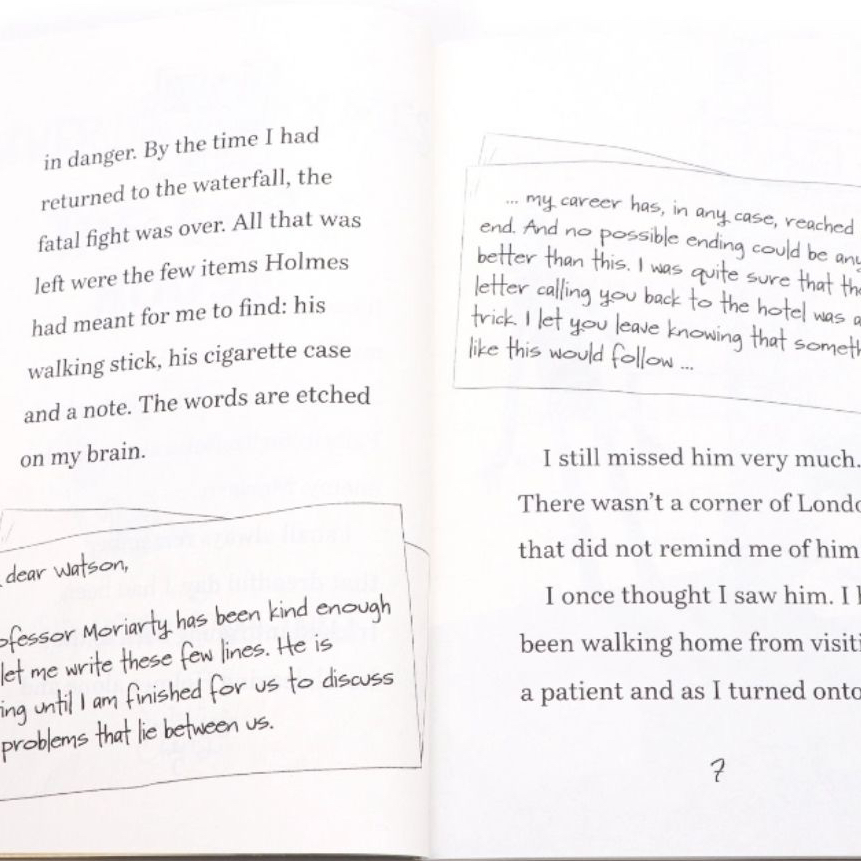 in danger. By the time I had
returned to the waterfall, the
fatal fight was over. All that was
left were the few items Holmes
had meant for me to find: his
walking stick, his cigarette case
and a note. The words are etched
on my brain.
dear Watson,
ofessor Moriarty has been kind enough
let me write these few lines. He is
ing until I am finished for us to discuss
problems that lie between us.
... my career has, in any case, reached
end. And no possible ending could be any
better than this. I was quite sure that the
letter calling you back to the hotel was a
trick. I let you leave knowing that someth
like this would follow ...
I still missed him very much.
There wasn't a corner of Londo
that did not remind me of him
I once thought I saw him. I h
been walking home from visiti
a patient and as I turned onto
7